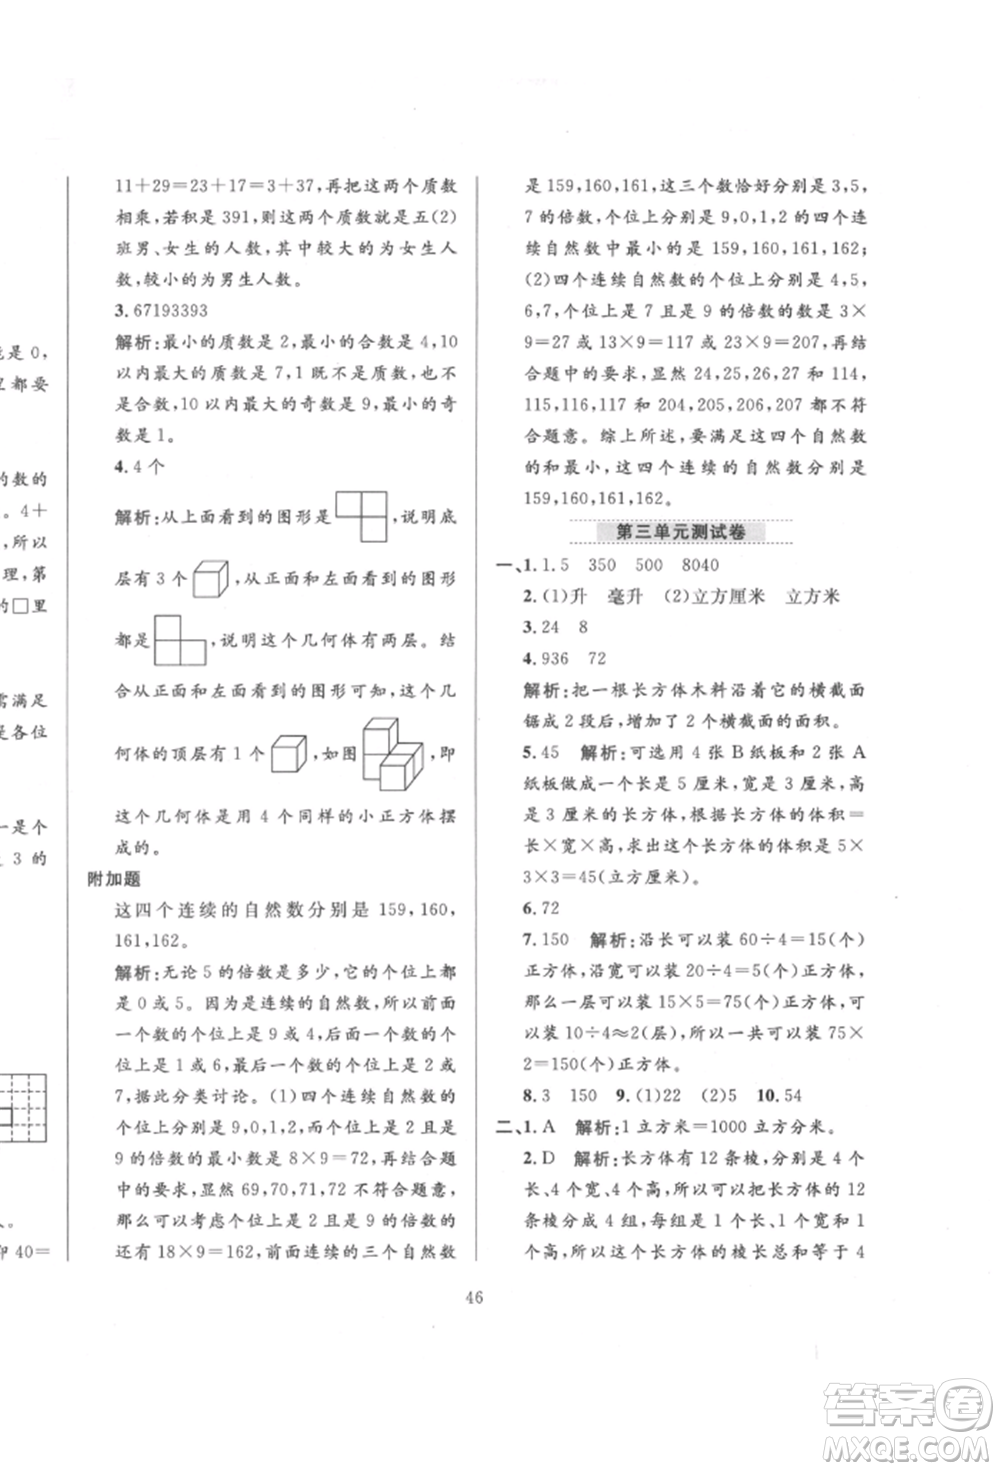 能是 0,
里都要
的数的
。4＋
,所以
理,第
的□里
需满足
是各位
一是个
是 3 的
人。
即 40＝
11＋29＝23＋17＝3＋37,再把这两个质数
相乘,若积是 391,则这两个质数就是五(2)
班男、女生的人数,其中较大的为女生人
数,较小的为男生人数。
3.67193393
解析:最小的质数是 2,最小的合数是 4,10
以内最大的质数是 7,1 既不是质数,也不
是合数,10 以内最大的奇数是 9,最小的奇
数是 1。
4.4 个
解析:从上面看到的图形是,说明底
层有 3 个,从正面和左面看到的图形
都是,说明这个几何体有两层。结
合从正面和左面看到的图形可知,这个几
何体的顶层有 1 个,如图,即
这个几何体是用 4 个同样的小正方体摆
成的。
附加题
这四个连续的自然数分别是 159,160,
161,162。
解析:无论 5 的倍数是多少,它的个位上都
是 0 或 5。因为是连续的自然数,所以前面
一个数的个位上是 9 或 4,后面一个数的个
位上是 1 或 6,再后面一个数的个位上是 2 或
7,据此分类讨论。(1)四个连续自然数的
个位上分别是 9,0,1,2,个位上是 2 且是
9 的倍数的最小数是 8×9＝72,再结合题
中的要求,显然 69,70,71,72 不符合题意,
那么可以考虑个位上是 2 且是 9 的倍数的
数还有 18×9＝162,前面连续的三个自然数
是 159,160,161,这三个数恰好分别是 3,5,
7 的倍数,个位上分别是 9,0,1,2 的四个连
续自然数中最小的是 159,160,161,162;
(2)四个连续自然数的个位上分别是 4,5,
6,7,个位上是 7 且是 9 的倍数的数是 3×
9＝27 或 13×9＝117 或 23×9＝207,再结
合题中的要求,显然 24,25,26,27 或 114,
115,116,117 或 204,205,206,207 都不符
合题意。综上所述,要满足这四个自然数
的和最小,这四个连续的自然数分别是
159,160,161,162。
第三单元测试卷
一、1.1.5 350 500 8040
2.(1)升 毫升 (2)立方厘米 立方米
3.24 8
4.936 72
解析:把一根长方体木料沿着它的横截面
锯成 2 段后,增加了 2 个横截面的面积。
5.45 解析:可选用 4 张 B 纸板和 2 张 A
纸板做成一个长是 5 厘米,宽是 3 厘米,高
是 3 厘米的长方体,根据长方体的体积＝
长×宽×高,求出这个长方体的体积是 5×
3×3＝45(立方厘米)。
6.72
7.150 解析:沿长可以装 60÷4＝15(个)
正方体,沿宽可以装 20÷4＝5(个)正方体,
那么一层可以装 15×5＝75(个)正方体,可
以装 10÷4≈2(层),所以一共可以装 75×
2＝150(个)正方体。
8.3 150 9.(1)22 (2)5 10.54
二、1.A 解析:1 立方米＝1000 立方分米。
2.D 解析:长方体有 12 条棱,分别是 4 个
长、4 个宽、4 个高,所以可以把长方体的 12
条棱分成 4 组,每组是 1 个长、1 个宽和 1
个高,所以这个长方体的棱长总和等于 4
46
答案圈
MXQE.COM